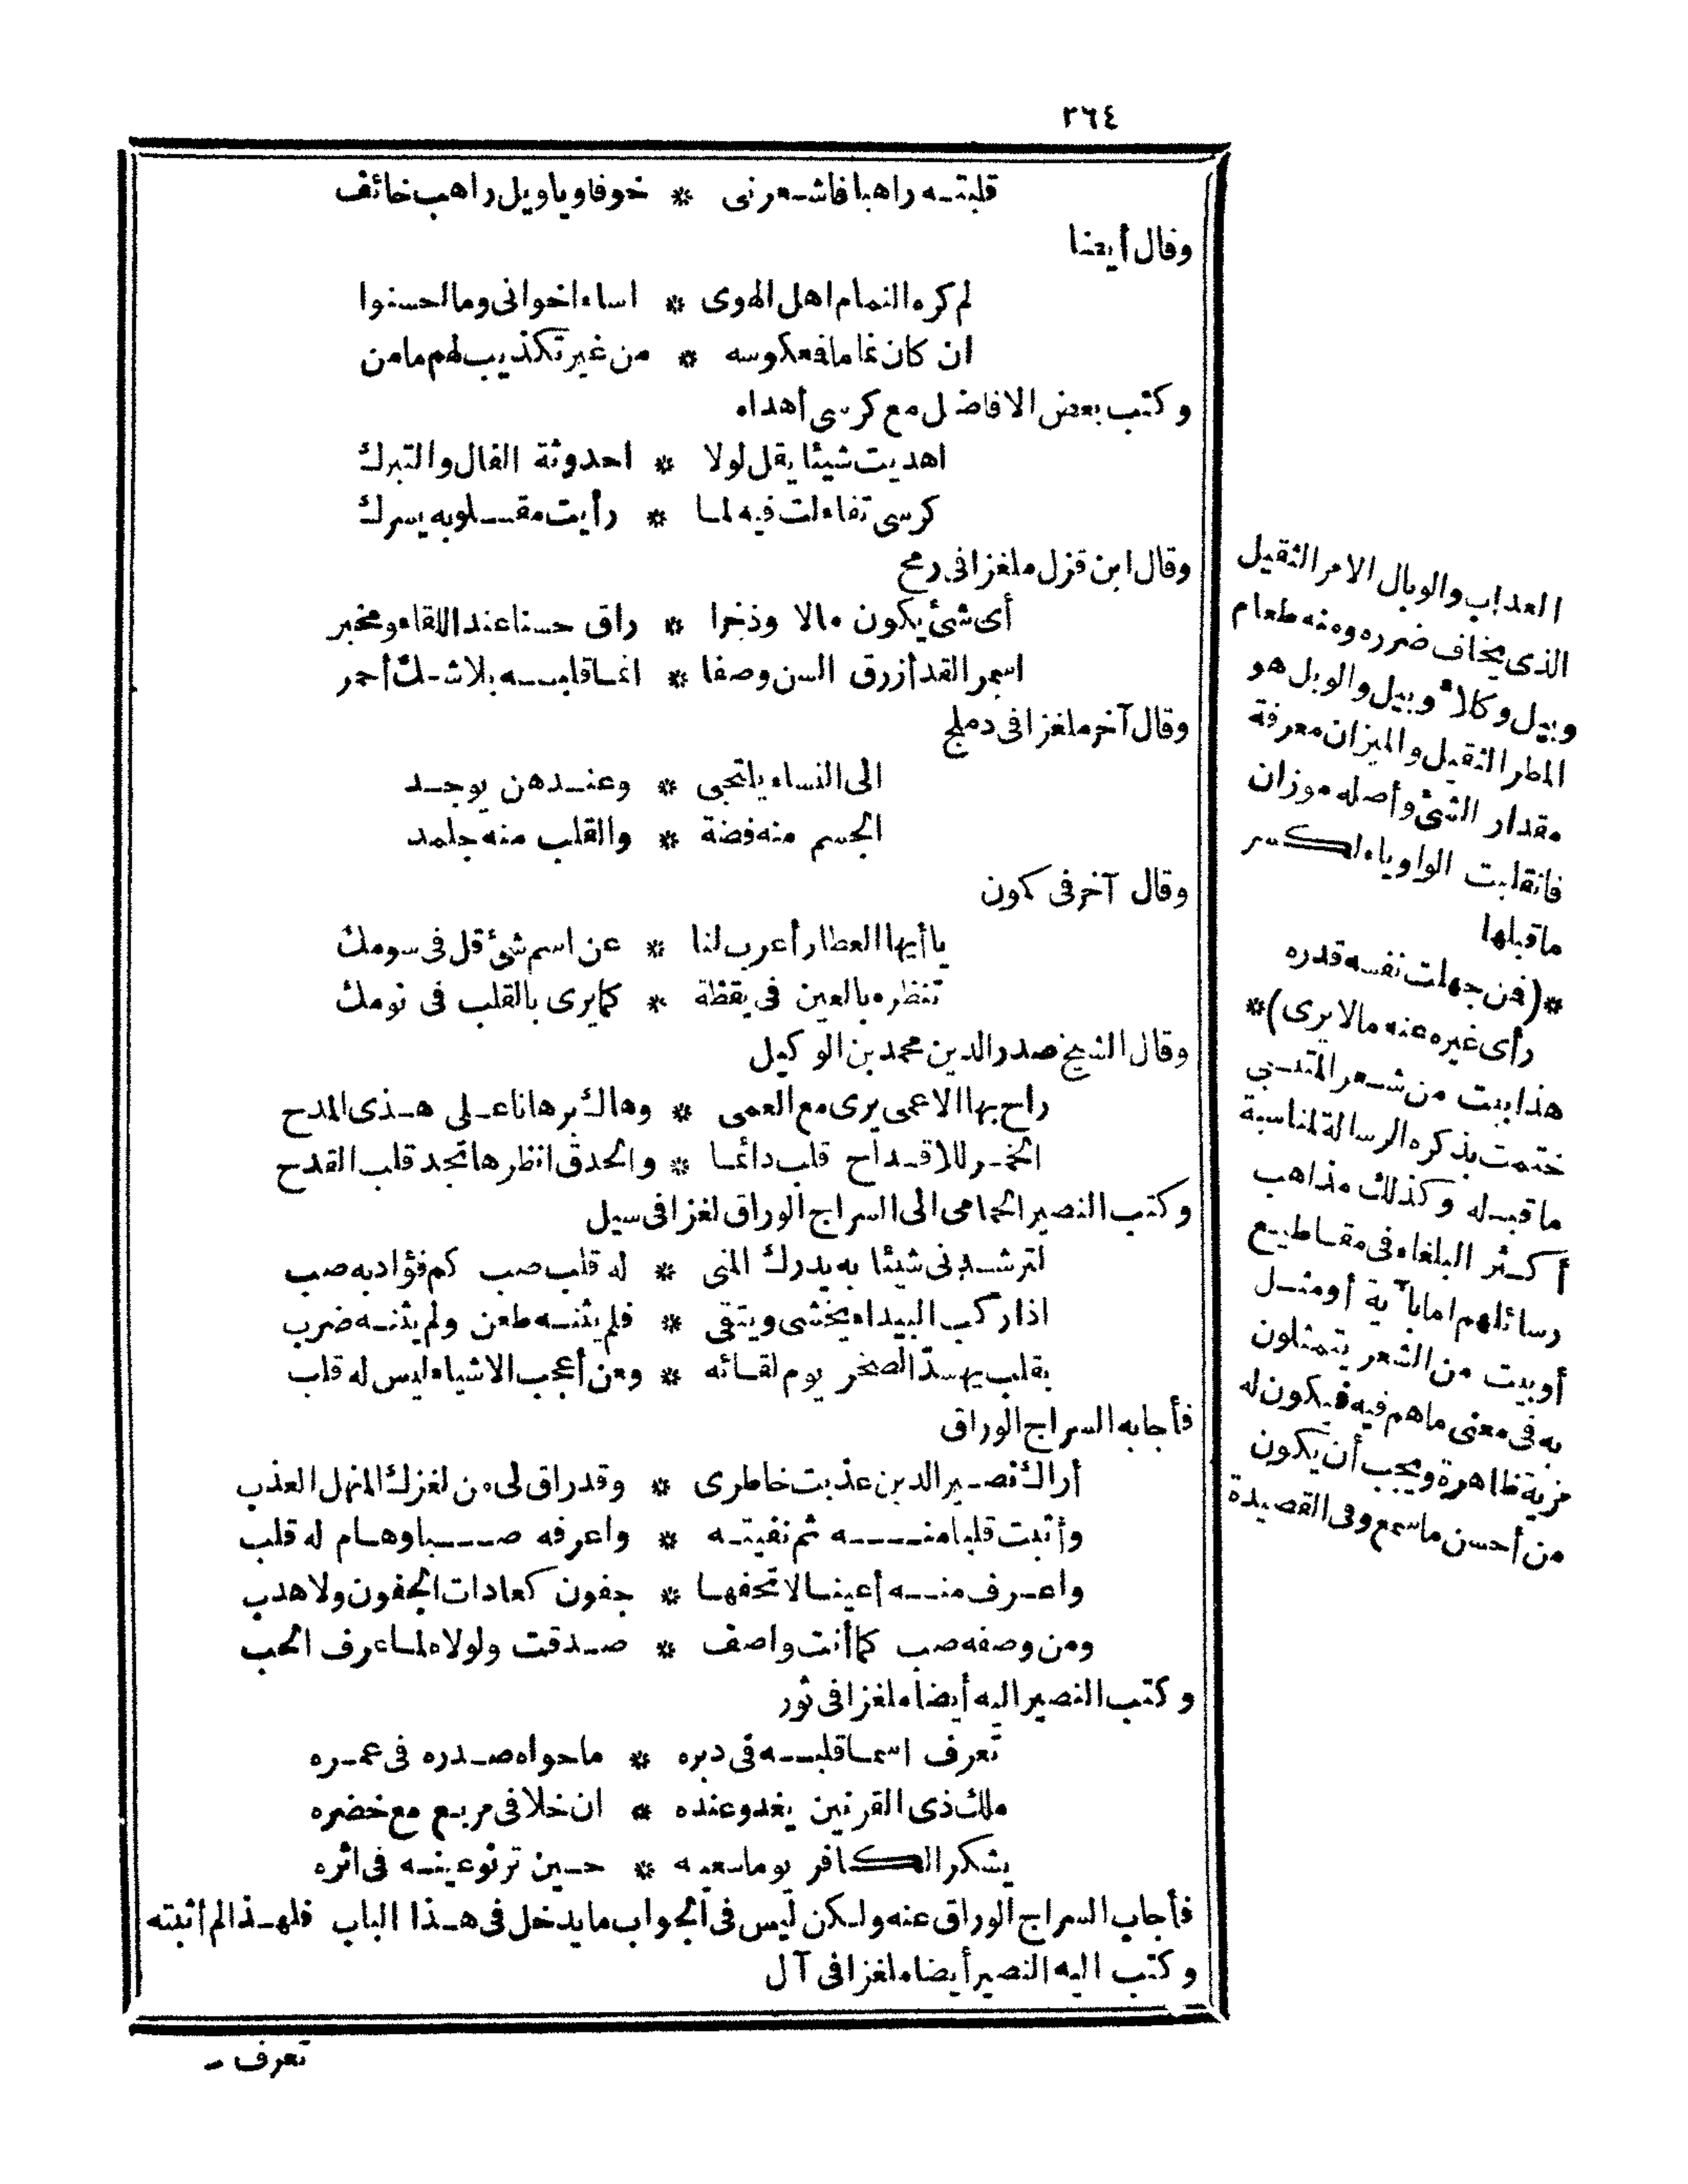 ٣٦٤
قلبته راهبا فاشعرني * خوفا ويا ويل راهب خائف
وقال أيضا
لم كره النمام اهل الهوى * اساء اخواني وما احسنوا
ان كان نماما فمعكوسه * من غير تكذيب لهم مامن
وكتب بعض الافاضل مع كرسى أهداه
اهديت شيئا يقل لولا * احدوثة الفال والتبرك
كرسى تفاءلت فيه لما * رأيت مقلوبه يسرك
وقال ابن قزل ملغزا فى رمح
أى شئ يكون مالا وذخرا * راق حسنا عند اللقاء ومخبر
اسمر القد أزرق السن وصفا * انما قلبه بلا شك أحمر
وقال آخر ملغزا فى دملج
الى النساء يلتجى * وعندهن يوجد
الجسم منه فضة * والقلب منه جلمد
وقال آخر فى كمون
يا أيها العطار أعرب لنا * عن اسم شئ قل فى سومك
تنظره بالعين فى يقظة * كما يرى بالقلب فى نومك
وقال الشيخ صدر الدين محمد بن الوكيل
راح بها الاعمى يرى مع العمى * وهاك برهانا على هذى المدح
الخمر للاقداح قلب دائما * والحدق انظرها تجد قلب القدح
وكتب النصير الحمامى الى السراج الوراق لغزا فى سيل
لترشدنى شيئا به يدرك المنى * له قلب صب كم فؤاد به صب
اذا ركب البيداء يخشى ويتقى * فلم يثنه طعن ولم يثنه ضرب
بقلب يهد الصخر يوم لقائه * ومن أعجب الاشياء ليس له قلب
فأجابه السراج الوراق
أراك نصير الدين عذبت خاطرى * وقد راق لى من لغزك المنهل العذب
وأثبت قلبا منه ثم نفيته * واعرفه صبا وهام له قلب
واعرف منه أعينا لا تحفها * جفون كعادات الجفون ولا هدب
ومن وصفه صب كما أنت واصف * صدقت ولولاه لما عرف الحب
وكتب النصير اليه أيضا ملغزا فى ثور
تعرف اسما قلبه فى دبره * ما حواه صدره فى عمره
ملك ذى القرنين يغدو عنده * ان خلا فى مربع مع خضره
يشكر الكافر يوما سعيه * حين ترنو عينه فى اثره
فأجاب السراج الوراق عنه ولكن ليس فى الجواب ما يدخل فى هذا الباب فلهذا لم أثبته
وكتب اليه النصير أيضا ملغزا فى آل
تعرف
العذاب والوبال الامر الثقيل
الذى يخاف ضرره ومنه طعام
وبيل وكلأ وبيل والوبل هو
المطر الثقيل والميزان معرفة
مقدار الشئ وأصله موزان
فانقلبت الواو ياء لكسر
ماقبلها
*(فمن جهلت نفسه قدره
رأى غيره عنه مالا يرى)*
هذا بيت من شعر المتنبي
ختمت بذكره الرسالة لمناسبة
ما قبله وكذلك مذاهب
أكثر البلغاء فى مقاطيع
رسائلهم اما بآية أو مثل
أو بيت من الشعر يتمثلون
به فى معنى ماهم فيه فيكون له
مزية ظاهرة ويجب أن يكون
من أحسن ما سمع وفى القصيدة